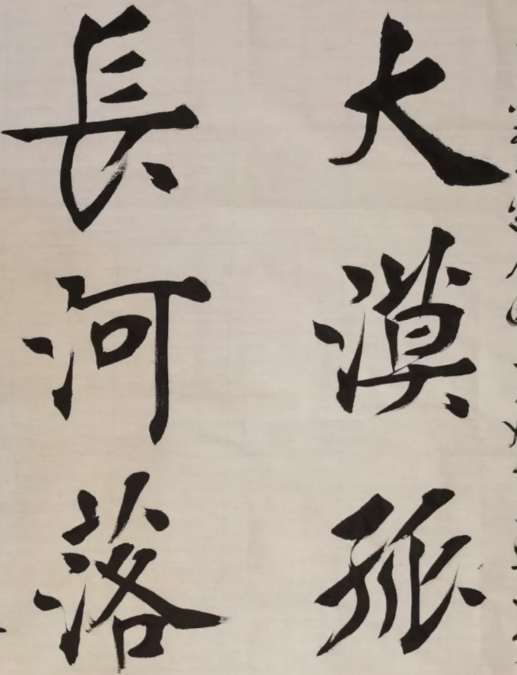 大漠孤
長河落